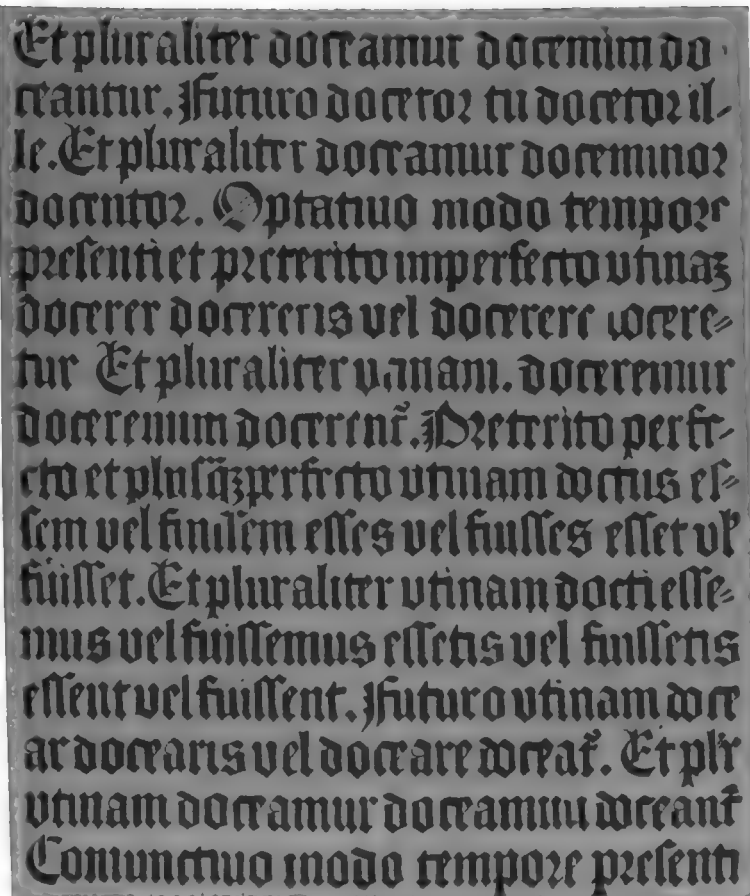 Et pluraliter doceamur docemim do
ceantur. Futuro docetor tu docetor il-
le. Et pluraliter doceamur doceminor
docentor. Optatiuo modo tempore
presenti et preterito imperfecto vtinaꝫ
docerer docereris vel docerere docere⸗
tur Et pluraliter vtinam. doceremur
doceremini docerent᷑. Preterito perfe-
cto et plusq̃ꝫperfecto vtinam doctus es⸗
sem vel fuissem esses vel fuisses esset vł
fuisset. Et pluraliter vtinam docti esse⸗
mus vel fuissemus essetis vel fuissetis
essent vel fuissent. Futuro vtinam doce
ar docearis vel doceare doceat᷑. Et plr̃
vtinam doceamur doceamini doceant᷑
Coniunctiuo modo tempore presenti